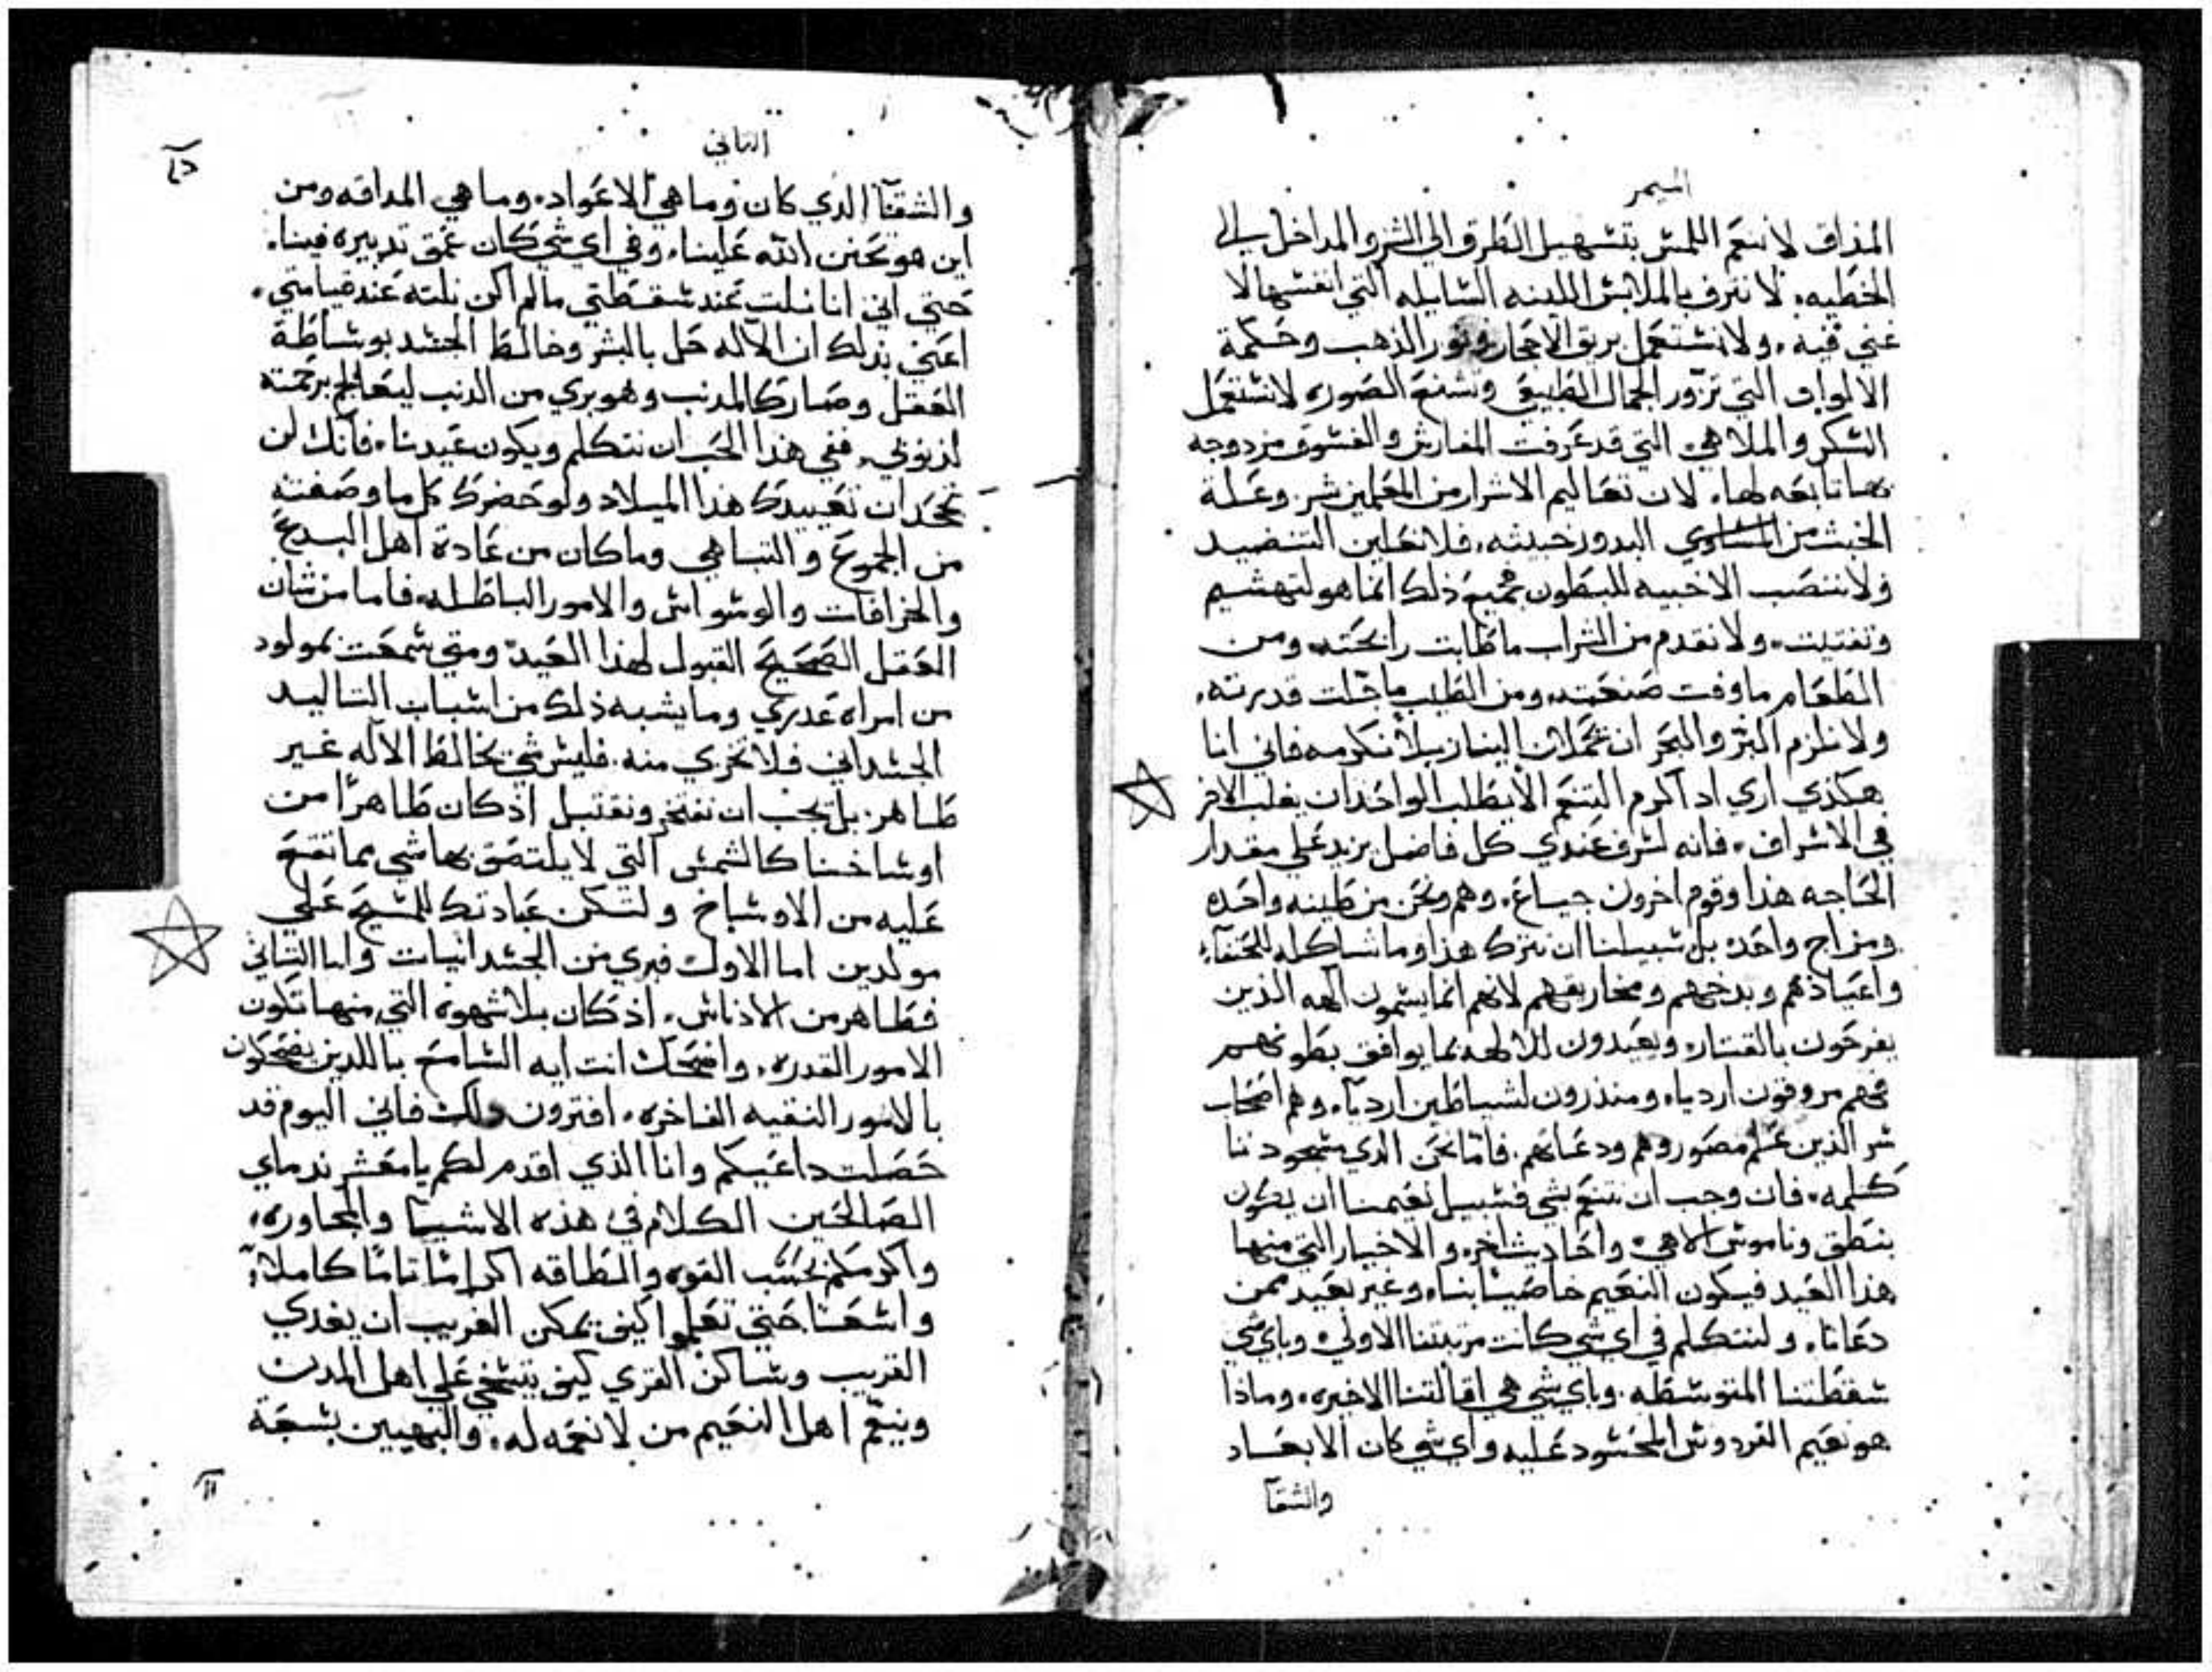 الميمر
المذاق لا ننعم اللمس بتسهيل الطرق الى الشر والمداخل الي
الخطيه. لا نترف بالملابس اللينه السايله التي انفسها لا
غني فيه. ولا نستعمل بريق الاحجار ونور الذهب وحكمة
الالوان التي تزور الجمال الطبيعي وتشنع الصوره لا نستعمل
السكر والملاهي التي قد عرفت المفارش والفسوق مزدوجه
بها تابعه لها. لان تعاليم الاشرار من المعلمين شر وغلة
الخبث من البدور خبيثه. فلا نعلين التنضيد
ولا ننصب الاخبيه للبطون جميع ذلك انما هو لتهشيم
وتفتيت. ولا نقدم من الشراب ما طابت رايحته ومن
الطعام ما وفت صنعته ومن الطيب ما جلت قدرته.
ولا نلزم البر والبحر ان يحملان الينا زبلا نكرمه فاني انا
هكذي اري اد اكرم التنعم الا يطلب الواحد ان يغلب الاخر
في الاشراف. فانه لشرف عندي كل فاضل يزيد علي مقدار
الحاجه هذا وقوم اخرون جياع. وهم ونحن من طينه واحده
ومزاج واحده بل سبيلنا ان نترك هذا وما شاكله للحنفاء
واعيادهم وبدخهم ومخاريقهم لانهم انما يسمون الهه الذين
يفرحون بالقتار. ويعبدون للالهه بما يوافق بطونهم
فهم مروقون ارديا. ومنذرون لشياطين ارديا. وهم اصحاب
شر الذين عملهم مصوروهم ودعاتهم. فاما نحن الدي سجودنا
كلمه. فان وجب ان نتنعم بشي فسبيل نعيمنا ان يكون
بنطق وناموس الاهي. واحاديث اخر. والاخبار التي منها
هذا العيد فيكون النعيم خاصيا بنا. وغير بعيد ممن
دعانا. ولنتكلم في اي شي كانت مرتبتنا الاولي. وباي شي
سقطتنا المتوسطه. وباي شي هي اقالتنا الاخيره. وماذا
هو نعيم الفردوس المحسود عليه واي شي كان الابعاد
والشقا
التاني
والشقا الدي كان وما هي الاعواد. وما هي المداقه ومن
اين هو تحنن الله علينا. وفي اي شي كان عمق تدبيره فينا.
حتي اني انا نلت عند سقطتي ما لم اكن نلته عند قيامتي.
اعني بدلك ان الاله حل بالبشر وخالط الجسد بوساطة
العقل وصار كالمدنب وهو بري من الدنب ليعالج برحمته
لدنوبي. ففي هذا الحب ان نتكلم ويكون عيدنا. فانك لن
تجد ان تعييدك هذا الميلاد ولو حضرك كل ما وصفته
من الجموع والتباهي وما كان من عادة اهل البدع
والخرافات والوسواس والامور الباطله. فاما من شان
العقل الصحيح القبول لهذا العيد. ومتي سمعت بمولود
من امراه عدري وما يشبه ذلك من اسباب التاليد
الجسداني فلا تخزي منه. فليس شي يخالط الاله غير
طاهر. بل يجب ان نفتخر ونقتبل اذ كان طاهرًا من
اوساخنا كالشمس التي لا يلتصق بها شي مما تقع
عليه من الاوساخ ولتكن عبادتك للمسيح علي
مولدين اما الاول فبري من الجسدانيات واما التاني
فطاهر من الادناس. اذ كان بلا شهوه التي منها تكون
الامور القدره. واضحك انت ايه السامع باللدين يضحكون
بالامور النقيه الفاخره. افترون ذلك فاني اليوم قد
حصلت داعيكم وانا الذي اقدم لكم يا معشر ندماي
الصالحين الكلام في هذه الاشيا والمجاوره.
واكرمكم بحسب القوه والطاقه اكرامًا تامًا كاملاً.
واشعًا حتي تعلموا كيف يمكن الغريب ان يغدي
القريب وساكن القري كيف يتسخي علي اهل المدن
وينعم اهل النعيم من لا نعمه له. والبهيين بسجة